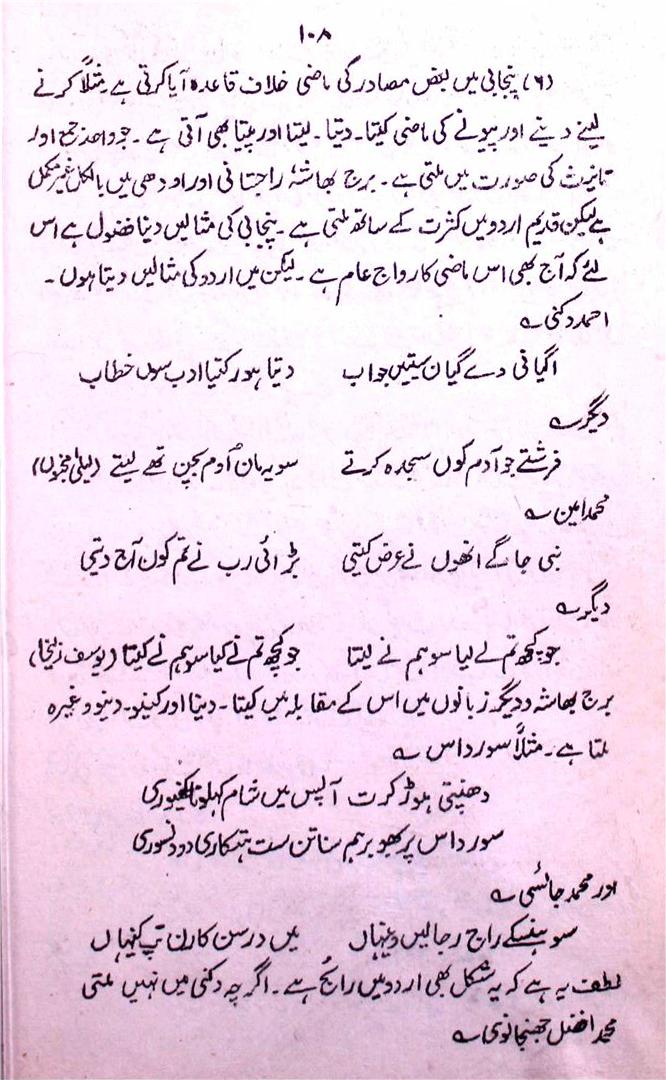 ۱۰۸
(۶) پنجابی میں بعض مصادر کی ماضی خلاف قاعدہ آیا کرتی ہے مثلاً کرنے
لینے دینے اور پیونے کی ماضی کیتا۔ دیتا۔ لیتا اور پیتا بھی آتی ہے۔ جو واحد جمع اور
تانیث کی صورت میں ملتی ہے۔ برج بھاشہ راجستانی اور اودھی میں بالکل غیر مکمل
ہے لیکن قدیم اردو میں کثرت کے ساتھ ملتی ہے۔ پنجابی کی مثالیں دینا فضول ہے اس
لئے کہ آج بھی اس ماضی کا رواج عام ہے۔ لیکن میں اردو کی مثالیں دیتا ہوں۔
احمد دکنی ؎
اگیانی دے گیان سیتیں جواب دیتا ہور کتیا ادب سوں خطاب
دیگر ؎
فرشتے جو آدم کوں سجدہ کرتے سو یہ مان آدم بچن تھے لیتے (لیلیٰ مجنوں)
محمد امین ؎
نبی جاگے انھوں نے عرض کیتی بڑائی رب نے تم کوں آج دیتی
دیگر ؎
جو کچھ تم لے لیا سو ہم نے لیتا جو کچھ تم نے کیا سو ہم نے کیتا (یوسف زلیخا)
برج بھاشہ و دیگر زبانوں میں اس کے مقابلہ میں کیتا۔ دینا اور کینو۔ دینو وغیرہ
ملتا ہے۔ مثلاً سورداس ؎
ہوڑ کرت آپس میں شام
سورداس پربھو برہم سناتن ست
اور محمد جائسی ؎
راج میں درسن کارن تپ کینہاں
لطف یہ ہے کہ یہ شکل بھی اردو میں رائج ہے۔ اگرچہ دکنی میں نہیں ملتی
محمد افضل جھنجانوی ؎